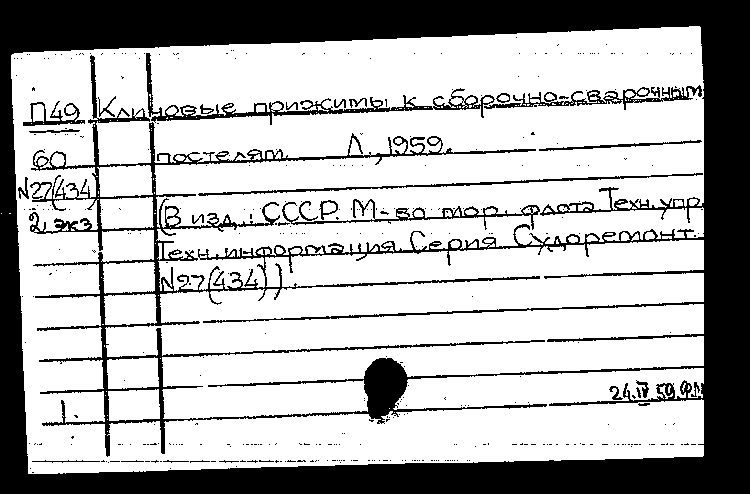 П49 Клиновые прижимы к сборочно-сварочным
60 постелям Л., 1959.
N27(434)
2 экз (В изд.: СССР. М-во мор. флота Техн. упр.
Техн. информация. Серия Судоремонт.
N27(434)).
24.IV.59.ФЛ
1.